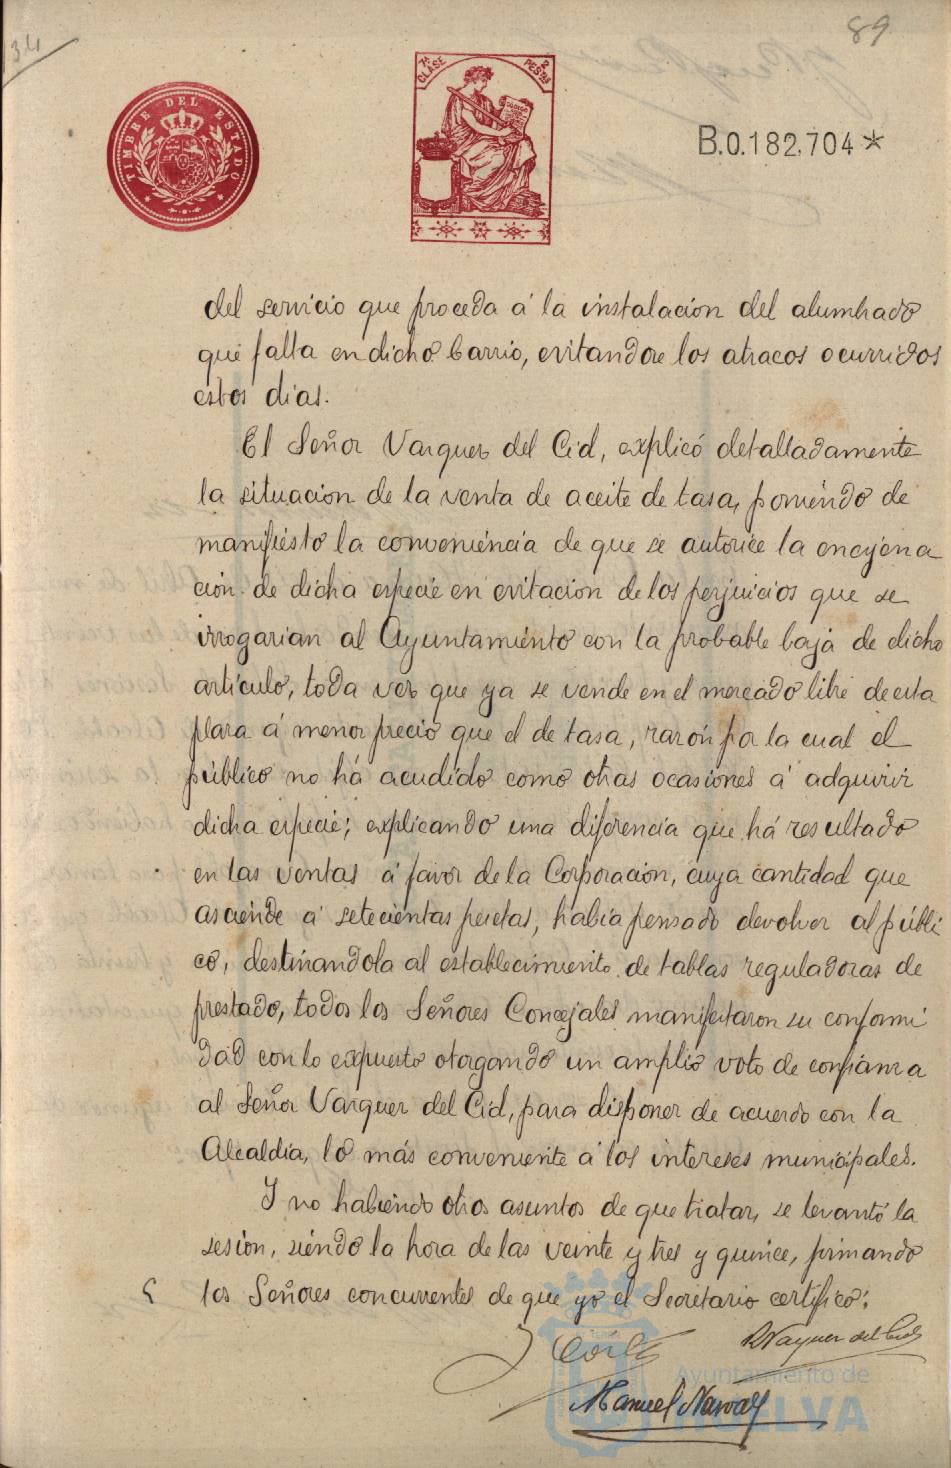 34
89
TIMBRE DEL ESTADO
7ª CLASE
2 PESTAS
CÓDIGO
B.0.182,704*
del servicio que proceda á la instalación del alumbrado
que falta en dicho barrio, evitandose los atracos ocurridos
estos dias.
El Señor Vazquez del Cid, explicó detalladamente
la situacion de la venta de aceite de tasa, poniendo de
manifiesto la conveniencia de que se autorice la enagena
ción de dicha especie en evitacion de los perjuicios que se
irrogarian al Ayuntamiento con la probable baja de dicho
articulo, toda vez que ya se vende en el mercado libre de esta
plaza á menor precio que el de tasa, razón por la cual el
público no há acudido como otras ocasiones á adquirir
dicha especie; explicando una diferencia que há resultado
en las ventas á favor de la Corporacion, cuya cantidad que
asciende á setecientas pesetas, habia pensado devolver al públi
co, destinandola al establecimiento de tablas reguladoras de
prestado, todos los Señores Concejales manifestaron su conformi
dad con lo expuesto otorgando un amplio voto de confianza
al Señor Vazquez del Cid, para disponer de acuerdo con la
Alcaldia, lo más conveniente á los intereses municipales.
Y no habiendo otros asuntos de que tratar, se levantó la
sesion, siendo la hora de las veinte y tres y quince, firmando
los Señores concurrentes de que yo el Secretario certifico:
Vazquez del Cid
Manuel
Ayuntamiento de
HUELVA